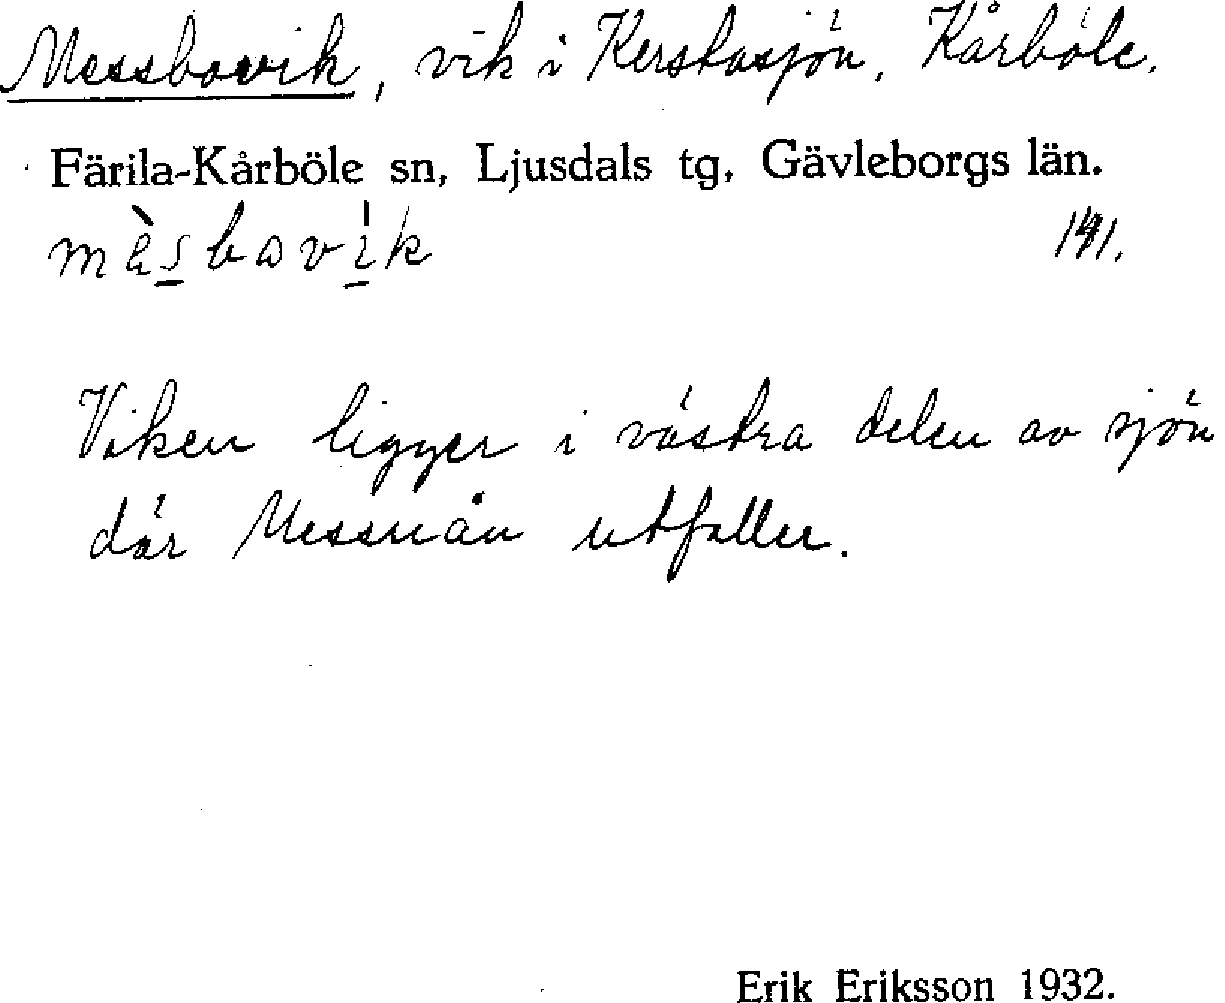 Messbovik, vik i Kerstasjön, Kårböle.
Färila-Kårböle sn, Ljusdals tg, Gävleborgs län.
141.
Viken ligger i västra delen av sjön
där Messnån utfaller.
Erik Eriksson 1932.